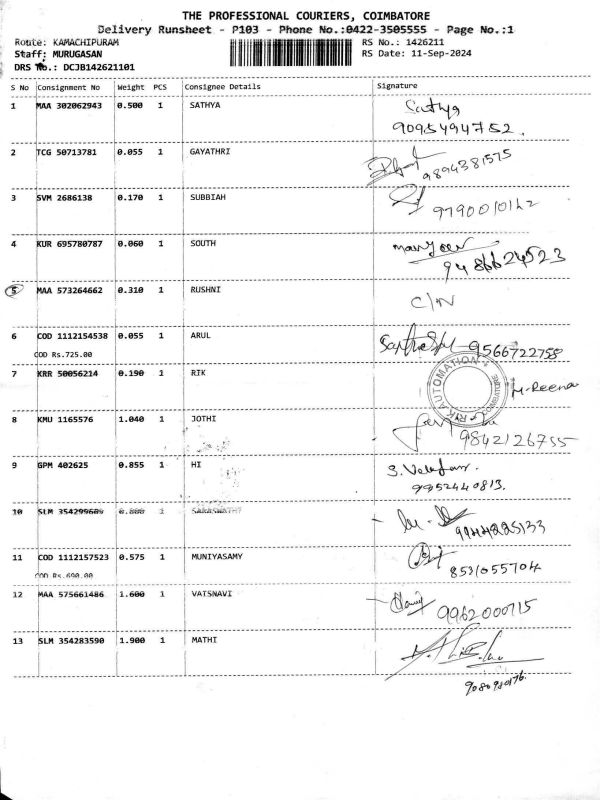 THE PROFESSIONAL COURIERS, COIMBATORE
Delivery Runsheet - P103 - Phone No.:0422-3505555 - Page No.:1
Route: KAMACHIPURAM RS No.: 1426211
Staff: MURUGASAN RS Date: 11-Sep-2024
DRS No.: DCJB142621101
S No Consignment No Weight PCS Consignee Details Signature
1 MAA 302062943 0.500 1 SATHYA Sathya
9095494752.
2 TCG 50713781 0.055 1 GAYATHRI
9894381575
3 SVM 2686138 0.170 1 SUBBIAH
4 KUR 695780787 0.060 1 SOUTH
9486624523
5 MAA 573264662 0.310 1 RUSHNI C/N
6 COD 1112154538 0.055 1 ARUL 9566722758
COD Rs.725.00
7 KRR 50056214 0.190 1 RIK M-Reena
RIK AUTOMATION
COIMBATORE
8 KMU 1165576 1.040 1 JOTHI
9842126755
9 GPM 402625 0.855 1 HI
9952440813.
10 SLM 354299689 0.800 1 SARASWATHY
9944225133
11 COD 1112157523 0.575 1 MUNIYASAMY
8531055704
COD Rs.690.00
12 MAA 575661486 1.600 1 VATSNAVI
9962000715
13 SLM 354283590 1.900 1 MATHI